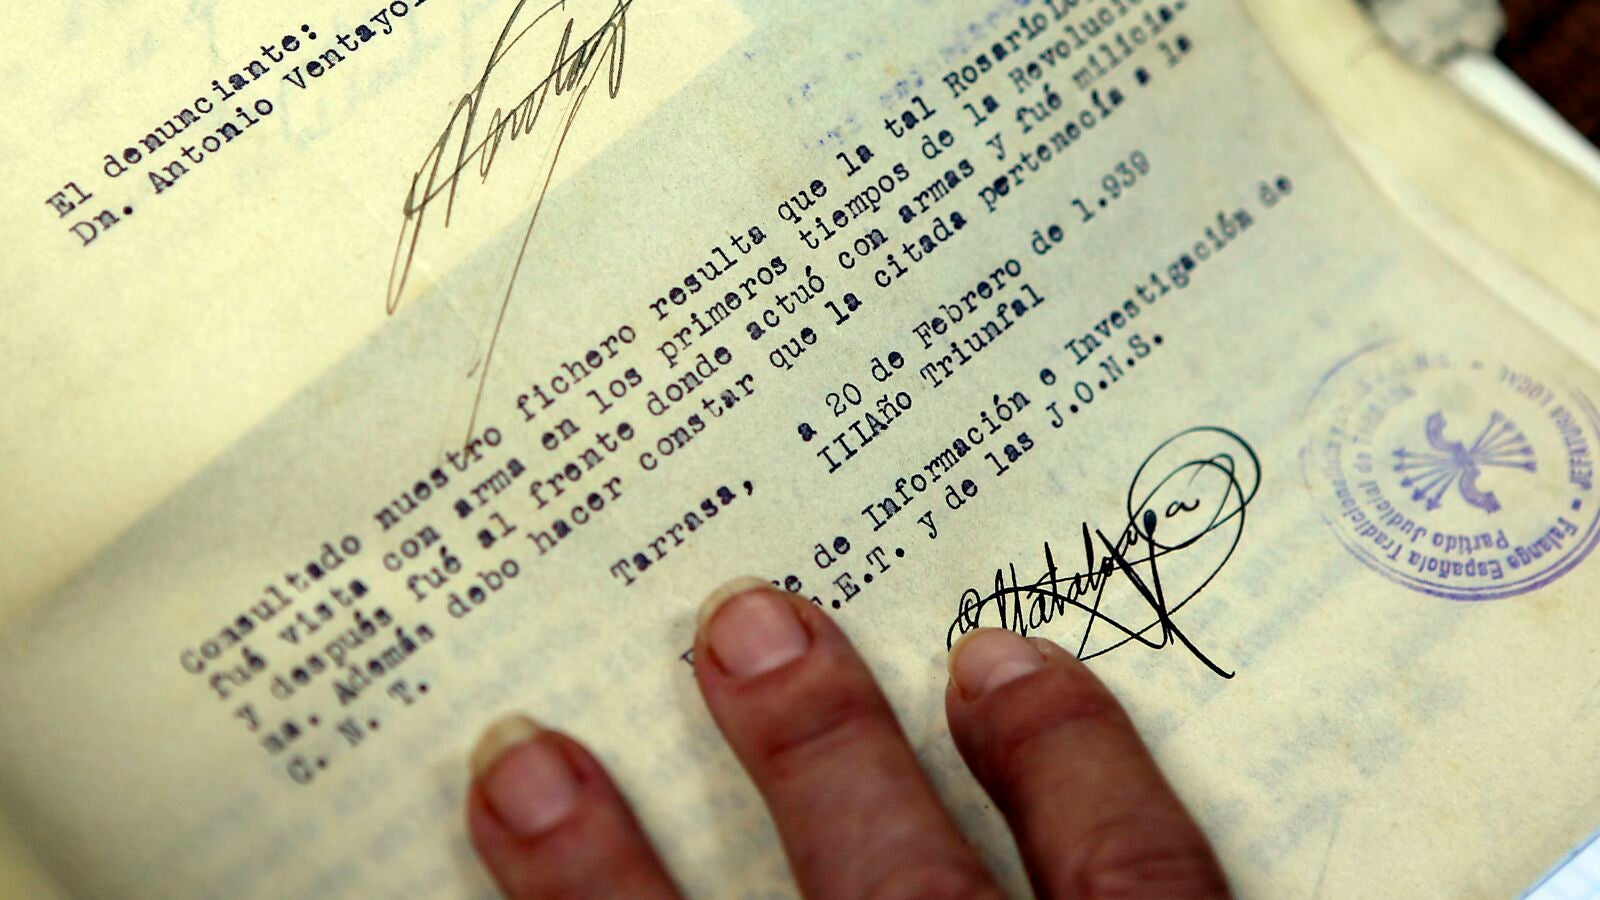 El denunciante:
Dn. Antonio Ventayol
Consultado nuestro fichero resulta que la tal Rosario
fué vista con arma en los primeros tiempos de la Revolució
y después fué al frente donde actuó con armas y fué milicia-
na. Además debo hacer constar que la citada pertenecía a la
C. N. T.
Tarrasa, a 20 de Febrero de 1.939
IIIAño Triunfal
fe de Información e Investigación de
.E.T. y de las J.O.N.S.
Falange Española Tradicionalista
JEFATURA LOCAL
Partido Judicial de